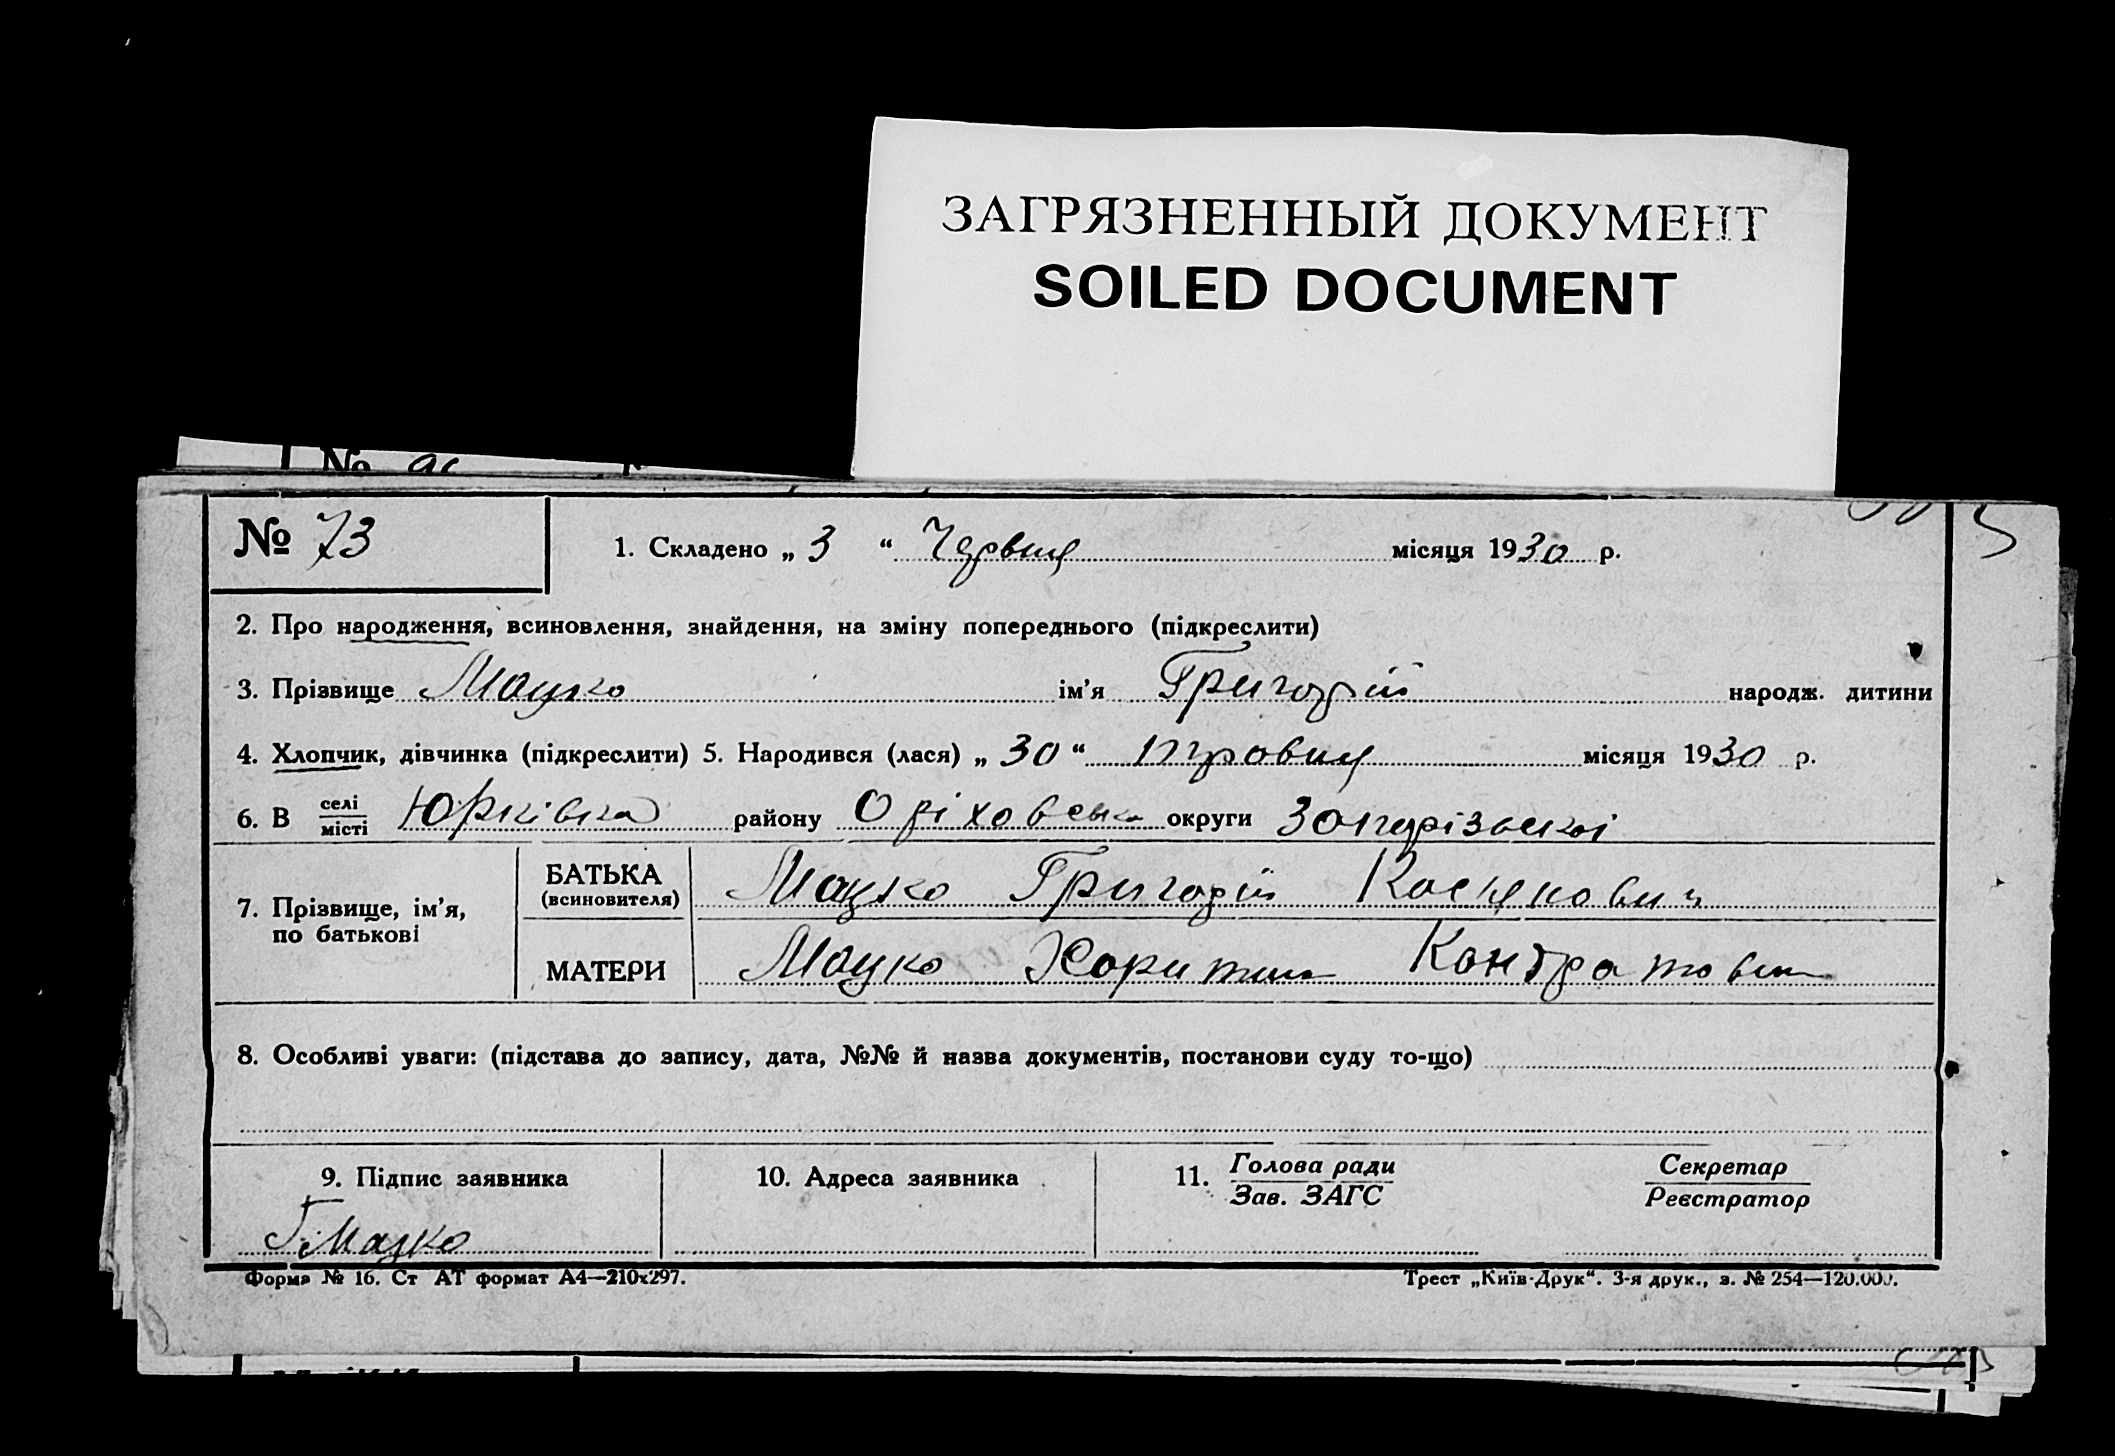 ЗАГРЯЗНЕННЫЙ ДОКУМЕНТ
SOILED DOCUMENT
№
№ 73
1. Складено „ 3 “ Червня місяця 1930 р.
2. Про народження, всиновлення, знайдення, на зміну попереднього (підкреслити)
3. Прізвище Мацко ім’я Григорій народж. дитини
4. Хлопчик, дівчинка (підкреслити) 5. Народився (лася) „ 30 “ Травня місяця 1930 р.
6. В селі/місті Юрківка району Оріховськ округи Запорізької
7. Прізвище, ім’я, по батькові
БАТЬКА (всиновителя) Мацко Григорій
МАТЕРИ Мацко Харитина Кондратовна
8. Особливі уваги: (підстава до запису, дата, №№ й назва документів, постанови суду то-що)
9. Підпис заявника
10. Адреса заявника
11. Голова ради/Зав. ЗАГС
Секретар/Реєстратор
Г. Мацко
Форма № 16. Ст АТ формат А4—210х297.
Трест „Київ-Друк“. 3-я друк., з. № 254—120.000.